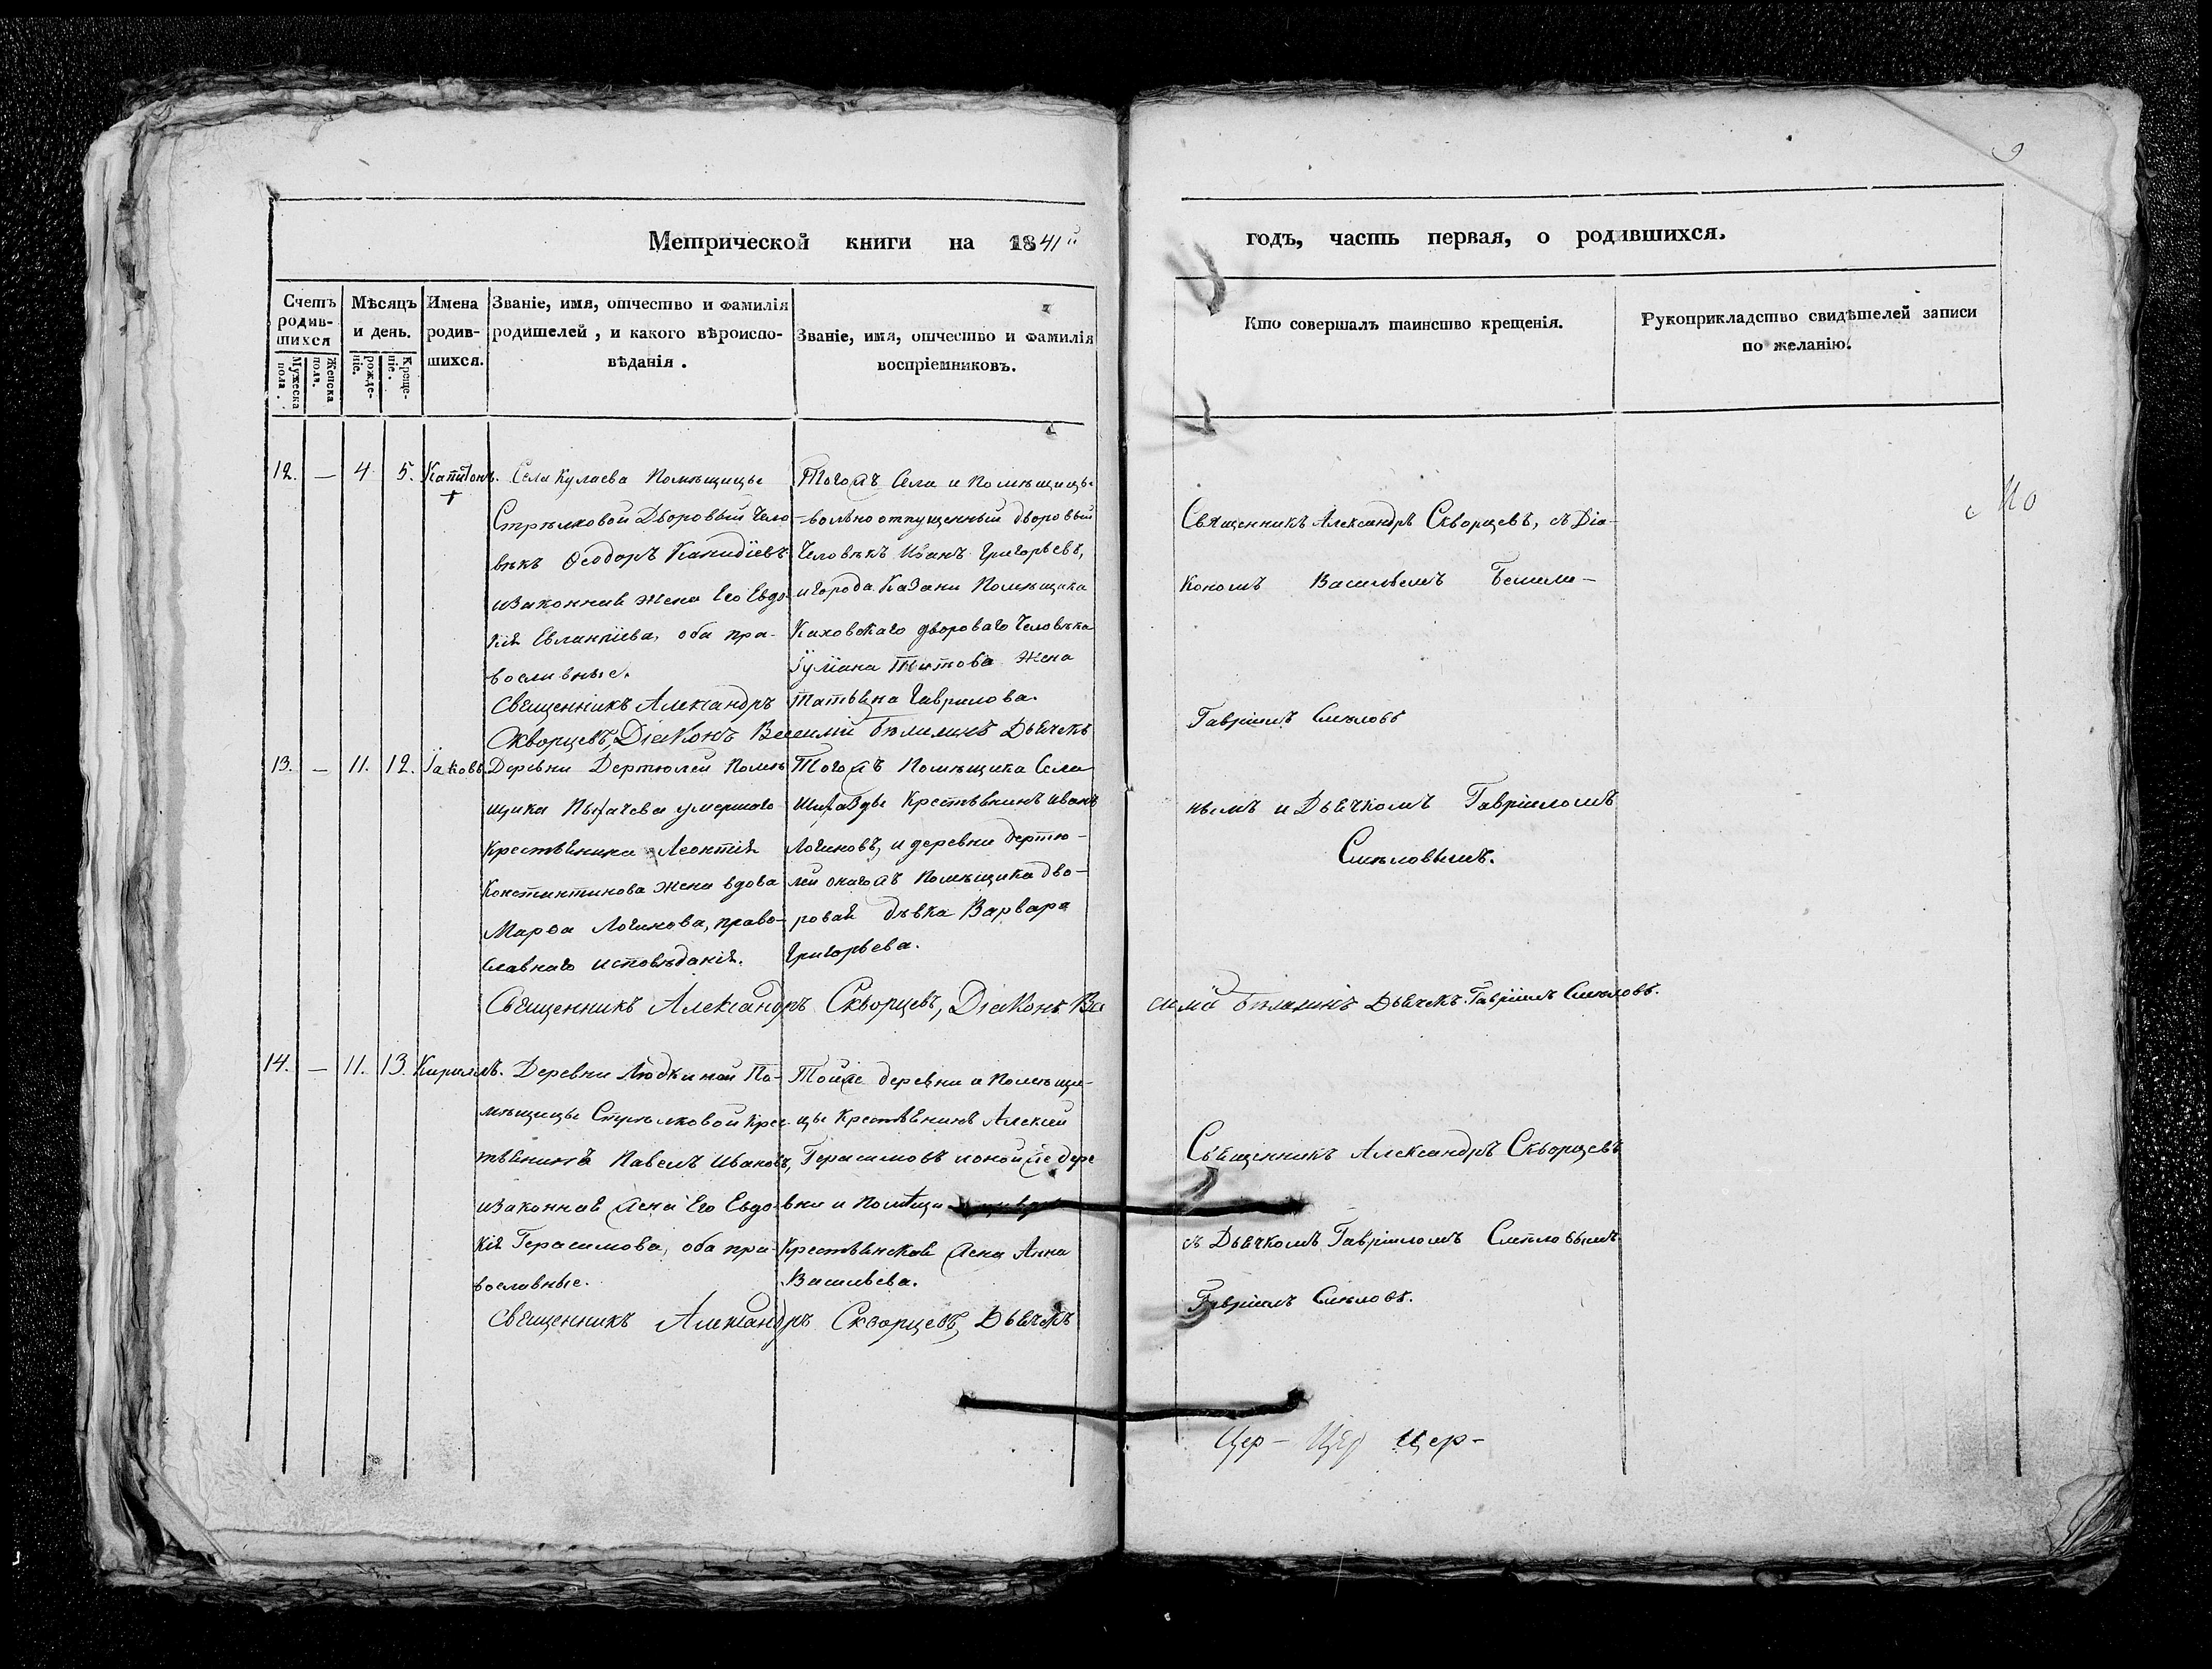 Метрической книги на 1841й
годъ, часть первая, о родившихся.
Счетъ родив-шихся
Мужеска пола.
Женска пола.
Мѣсяцъ и день.
рожде-ніе.
Креще-ніе.
Имена родив-шихся.
Званіе, имя, отчество и фамилія
родителей, и какого вѣроиспо-
вѣданія.
Званіе, имя, отчество и фамилія
воспріемниковъ.
Кто совершалъ таинство крещенія.
Рукоприкладство свидѣтелей записи
по желанію.
12. — 4 5. Капитонъ.
Села Кулаева Помѣщицы
Стрѣлковой Дворовый Чело
вѣкъ Ѳеодоръ
изаконная жена Его Евдо
кія Евлампіева, оба пра-
вославные.
Тогожъ Села и Помѣщицы
вольно отпущенный дворовый
Человѣкъ Иванъ Григорьевъ,
и города Казани Помѣщика
Каховскаго двороваго Человѣка
Іуліана Титова жена
Татьяна Гаврилова.
Священникъ Александръ Скворцевъ, съ Діа-
кономъ Васильемъ Бѣлили-
Священникъ Александръ
Скворцевъ, Діаконъ Василій Бѣлилинъ Дьячекъ
Гавріилъ Смѣловъ
13. — 11. 12. Іаковъ.
Деревни Дертюлей Помѣ
щика умершаго
Крестьянина Леонтія
Константинова жена вдова
Марѳа Логинова, право-
славнаго исповѣданія.
Тогожъ Помѣщика Села
Крестьянинъ Иванъ
Логиновъ, и деревни Дертю-
лей онагожъ Помѣщика дво-
ровая дѣвка Варвара
Григорьева.
нымъ и Дьячкомъ Гавріиломъ
Смѣловымъ.
Священникъ Александръ Скворцевъ, Діаконъ Ва
силій Бѣлилинъ Дьячекъ Гавріилъ Смѣловъ.
14. — 11. 13. Кириллъ.
Деревни Людкиной По-
мѣщицы Стрѣлковой Крес
тьянинъ Павелъ Ивановъ,
изаконная жена Его Евдо
кія Герасимова, оба пра-
вославные.
Тойже деревни и Помѣщи-
цы Крестьянинъ Алексѣй
Герасимовъ и онойже дере
вни и Помѣщи
Крестьянская жена Анна
Васильева.
Священникъ Александръ Скворцевъ
съ Дьячкомъ Гавріиломъ Смѣловымъ
Священникъ Александръ Скворцевъ, Дьячекъ
Гавріилъ Смѣловъ.
Цер- Цер Цер-